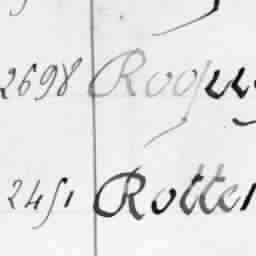 2698 Roquy
2451 Rotter